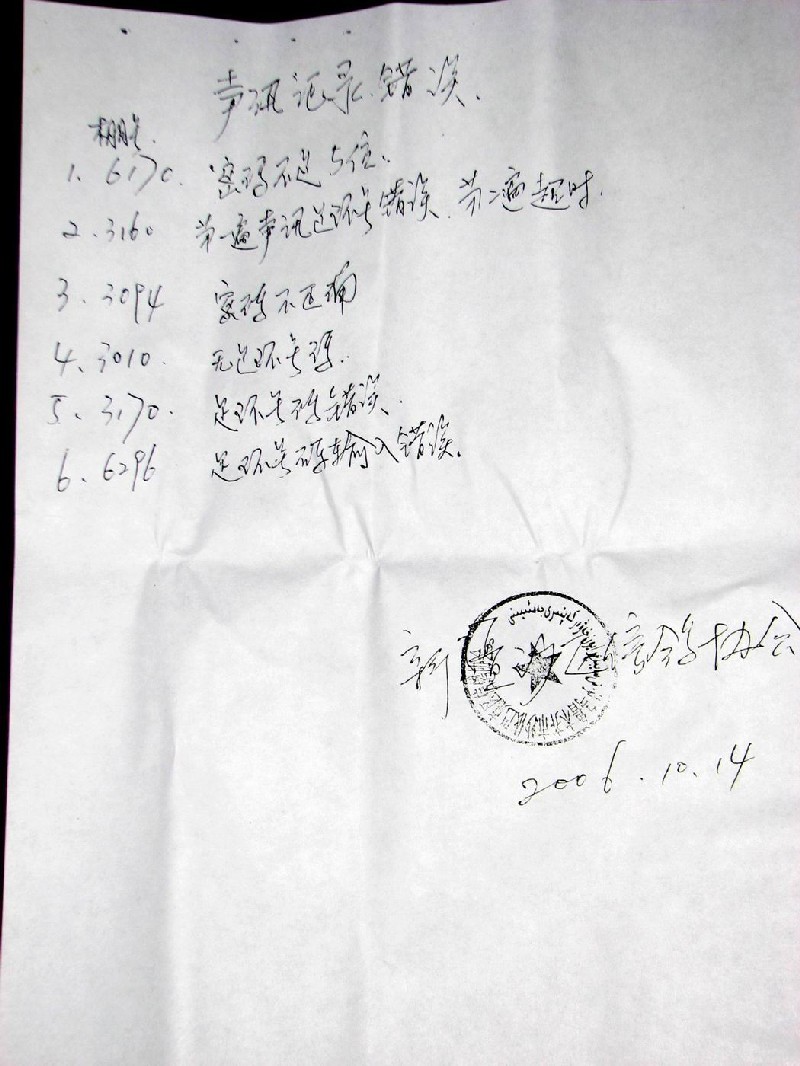 声讯记录错误.
棚号.
1. 6170. 密码不足5位.
2. 3160 第一遍声讯足环号错误、第二遍超时.
3. 3094 密码不正确
4. 3010. 无足环号码.
5. 3170. 足环号码错误.
6. 6296 足环号码输入错误.
新 信鸽协会
2006.10.14